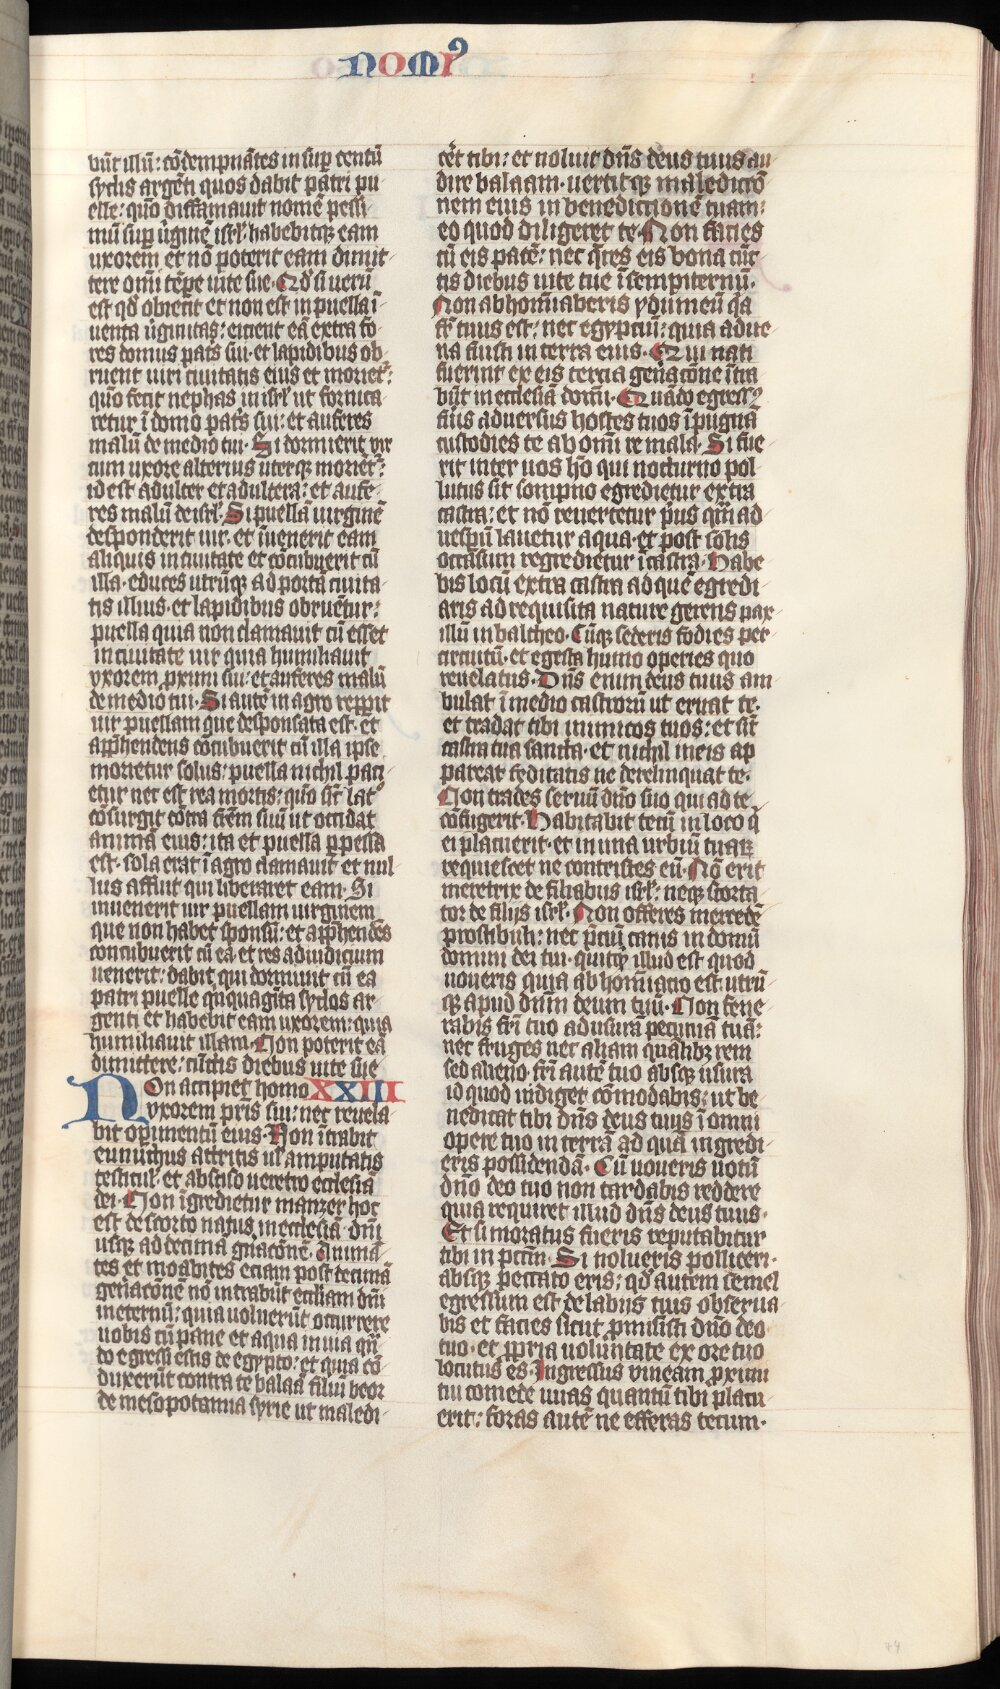 nomi⁹
bũt illũ: cõdempnãtes insup centũ
syclis argẽti quos dabit patri pu
elle: qm̃o diffamauit nomẽ pessi
mũ sup ũginẽ isrl̃: habebitqꝫ eam
uxorem et nõ poterit eam dimit
tere omĩ tẽpe uite sue. Qd̃ si uerũ
est qd̃ obicit et non est in puella ĩ
uenta ũginitas: eicient eã extra fo
res domus patris sui. et lapidibus ob
ruent uiri ciuitatis eius et moriet̃:
qm̃o fecit nephas in isrl̃ ut fornica
retur ĩ domo patris sui: et auferes
malũ de medio tui. Si dormierit vir
cum uxore alterius uterqꝫ moriet̃:
id est adulter et adultera: et aufe
res malũ de isrl̃. Si puellã uirginẽ
desponderit uir. et ĩuenerit eam
aliquis in ciuitate et cõcubuerit cũ
illa. educes utrũqꝫ ad portã ciuita
tis illius. et lapidibus obruẽtur:
puella quia non clamauit cũ esset
in ciuitate uir quia humiliauit
vxorem pximi sui: et auferes malũ
de medio tui. Si autẽ in agro reppit
uir puellam que desponsata est. et
apphendens cõcubuerit cũ illa ipse
morietur solus: puella nichil pati
etur nec est rea mortis: qm̃o sic̃ lat⁹
cõsurgit cõtra frẽm suũ ut occidat
animã eius: ita et puella ppessa
est. sola erat ĩ agro clamauit et nul
lus affuit qui liberaret eam. Si
inuenerit uir puellam uirginem
que non habet sponsũ: et apphendẽs
concubuerit cũ ea et res ad iudicium
uenerit: dabit qui dormiuit cũ ea
patri puelle quĩquagĩta syclos ar
genti et habebit eam uxorem: quia
humiliauit illam. Non poterit eã
dimittere: cũctis diebus uite sue
NOn accipiet homo XXIII
vxorem pris sui: nec reuela
bit opimentũ eius. Non ĩtrabit
eunuchus attritis ul̃ amputatis
testicul̃. et absciso ueretro ecclesiã
dei. Non ĩgredietur manzer hoc
est de scorto natus in ecclesiã dñi
usqꝫ ad decimã gñacõnẽ. Amma
tes et moabites eciam post decimã
genacõnẽ nõ intrabũt eccl̃iam dñi
in eternũ: quia noluerũt occurrere
uobis cũ pane et aqua in uia qñ
do egressi estis de egypto: et quia cõ
duxerũt contra te balaã filiũ beor
de mesopotamia syrie ut maledi
cẽt tibi: et noluit dñs deus tuus au
dire balaam. uertitqꝫ malediccõ
nem eius in benedictionẽ tuam:
eo quod diligeret te. Non facies
cũ eis pacẽ: nec q̃res eis bona cũc
tis diebus uite tue ĩ sempiternũ.
Non abhomĩaberis ydumeũ q̃a
fr̃ tuus est: nec egypciũ: quia adue
na fuisti in terra eius. Qui nati
fuerint ex eis tercia gen̾acõne ĩtra
bũt in ecclesiã domĩ. Quãdo egress⁹
fũis aduersus hostes tuos ĩ pugnã
custodies te ab omĩ re mala. Si fue
rit inter uos hõ qui nocturno pol
lutus sit sompno egredietur extra
castra: et nõ reuertetur pus qm̃ ad
uespũ lauetur aqua. et post solis
occasum regredietur ĩ castra. Habe
bis locũ extra castra ad quẽ egredi
aris ad requisita nature gerens pax
illũ in baltheo. Cũqꝫ sederis fodies per
circuitũ. et egesta humo operies quo
reuelatus. Dñs enim deus tuus am
bulat ĩ medio castrorũ ut eruat te.
et tradat tibi inimicos tuos: et sĩt
castra tua sancta. et nichil in eis ap
pareat feditatis ne derelinquat te.
Non trades seruũ dño suo qui ad te
cõfugerit. Habitabit tecũ in loco q̃
ei placuerit. et in una urbiũ tuaꝝ
requiescet ne contristes eũ. Nõ erit
meretrix de filiabus isrl̃: neqꝫ scorta
tor de filijs isrl̃. Non offeres mercedẽ
prostibuli: nec pciũ canis in domũ
domini dei tui. quitqꝫ illud est quod
uoueris quia abhomĩacio est utrũ
qꝫ apud dñm deum tuũ. Non fene
rabis fr̃i tuo ad usurã pecuniã tuã:
nec fruges nec aliam qualibꝫ rem
sed alieno. fr̃i autẽ tuo absqꝫ usura
id quod indiget cõmodabis: ut be
nedicat tibi dñs deus tuus ĩ omni
opere tuo in terrã ad quã ingredi
eris possidendã. Cũ uoueris uotũ
dño deo tuo non tardabis reddere
quia requiret illud dñs deus tuus.
Et si moratus fueris reputabitur
tibi in pcc̃m. Si nolueris polliceri.
absqꝫ peccato eris: qd̃ autem semel
egressum est de labiis tuis obserua
bis et facies sicut pmisisti dño deo
tuo. et ppria uoluntate ex ore tuo
locutus es. Ingressus vineam pximi
tui comede uuas quantũ tibi placu
erit: foras autẽ ne efferas tecum.